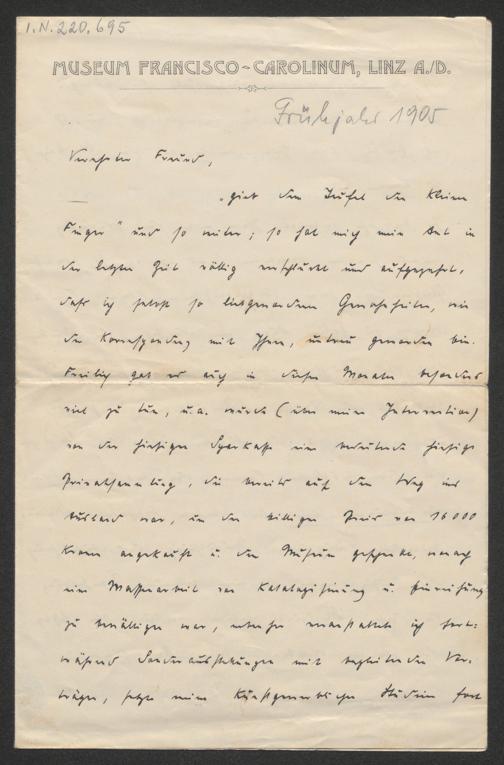 I.N. 220.695
MUSEUM FRANCISCO-CAROLINUM, LINZ A./D.
Frühjahr 1905
Verehrter Freund,
„gieb dem Teufel den kleinen
Finger“ und so weiter; so hat mich mein Amt in
der letzten Zeit völlig verschluckt und aufgezehrt,
daß ich selbst so liebgewordenen Gewohnheiten, wie
der Korrespondenz mit Ihnen, untreu geworden bin.
Freilich gab es auch in diesen Monaten besonders
viel zu tun, u.a. wurde (über meine Intervention)
von der hiesigen Sparkasse eine bedeutende hiesige
Privatsammlung, die bereits auf dem Weg ins
Ausland war, um den billigen Preis von 16000
Kronen angekauft u. dem Museum geschenkt, wonach
eine Massenarbeit von Katalogisierung u. Einreihung
zu bewältigen war, nebenher veranstaltete ich fort-
während Sonderausstellungen mit begleitenden Vor-
trägen, setzte meine kunstgewerblichen Studien fort